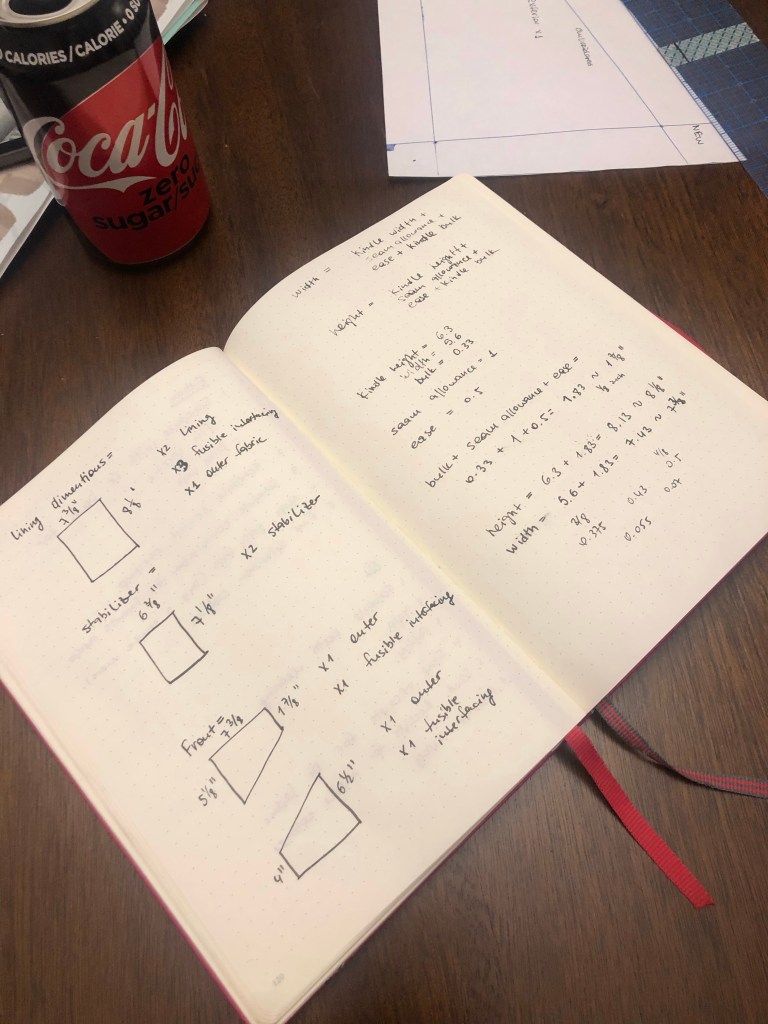 0 CALORIES / CALORIE • 0 SU
Coca-C
zero
sugar/su
NEW
width =
kindle width +
seam allowance +
ease + kindle bulk
height =
kindle height +
seam allowance +
ease + kindle bulk
kindle height = 6.3
width = 5.6
bulk = 0.33
seam allowance = 1
ease = 0.5
bulk + seam allowance + ease =
0.33 + 1 + 0.5 = 1.83 ≈ 1 7/8"
1/8 inch
height = 6.3 + 1.83 = 8.13 ≈ 8 1/8"
width = 5.6 + 1.83 = 7.43 ≈ 7 3/8"
3/8 0.43 4/8
0.375 0.055 0.5
0.07
lining dimentions =
7 3/8"
8 1/8"
x2 lining
x3 fusible interfacing
x1 outer fabric
stabilizer =
6 3/8"
7 1/8"
x2 stabilizer
Front =
7 3/8
1 7/8"
5 1/8"
x1 outer
x1 fusible interfacing
6 1/2"
4"
x1 outer
x1 fusible
interfacing